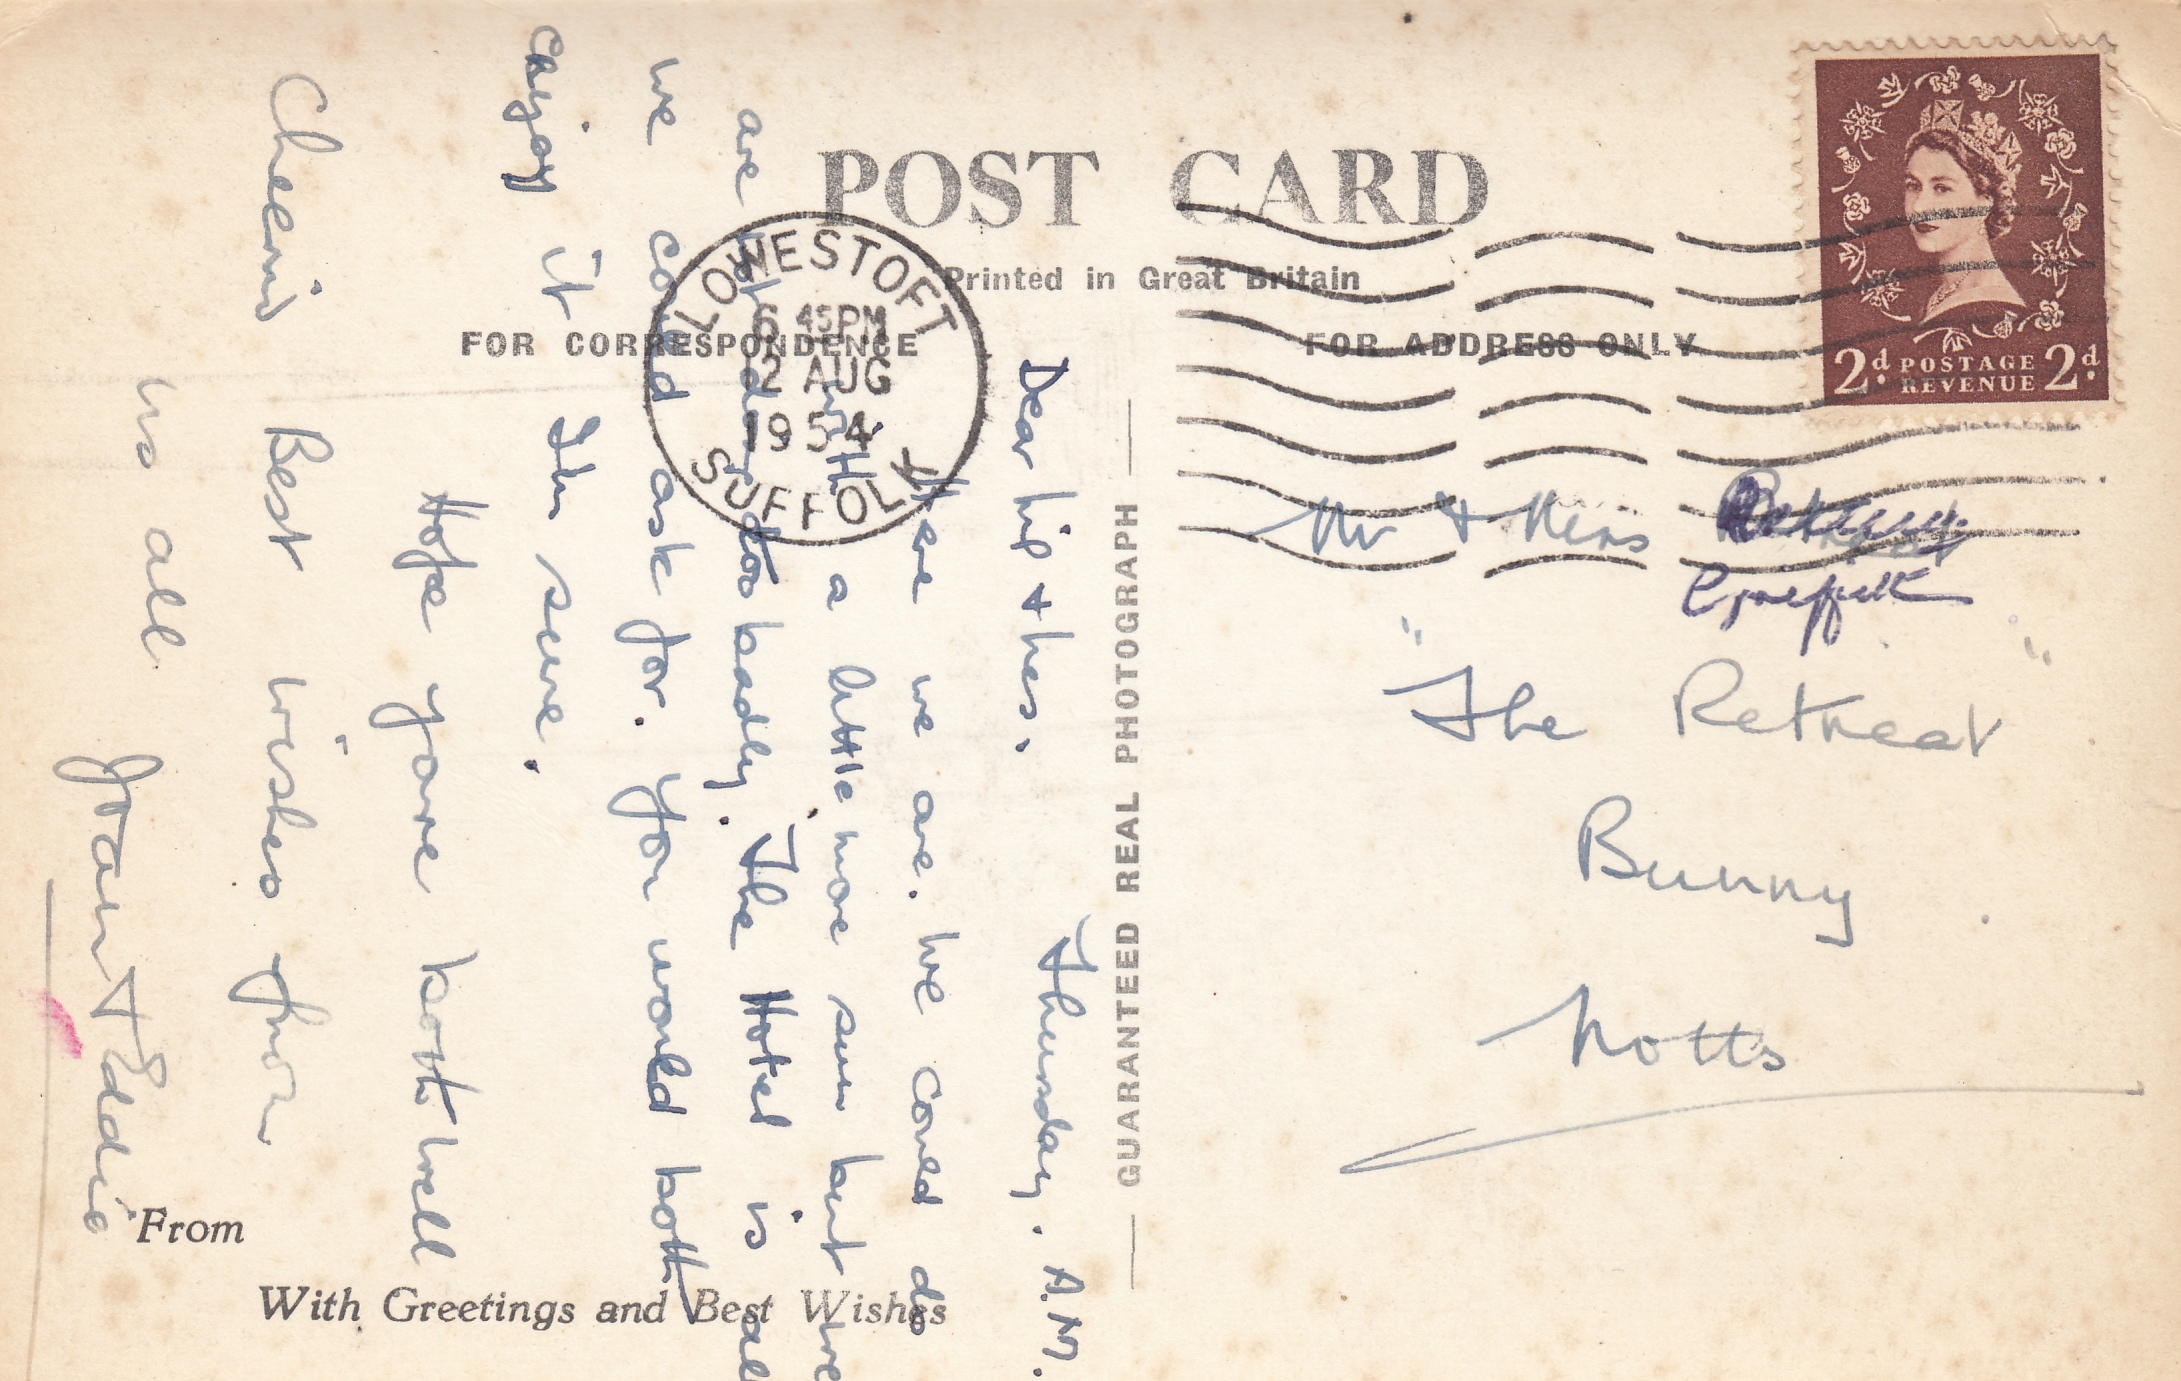 POST CARD
Printed in Great Britain
FOR CORRESPONDENCE
FOR ADDRESS ONLY
LOWESTOFT
6 45 PM
12 AUG
1954
SUFFOLK
2d. POSTAGE 2d.
REVENUE
GUARANTEED REAL PHOTOGRAPH
Thursday. A.M.
Dear &
Here we are. We could do
with a little more sun but we
are not doing too badly. The Hotel is all
we could ask for. You would both
enjoy it I'm sure.
Hope you're both well
Cheerio Best wishes from
us all
Joan & Eddie
From
With Greetings and Best Wishes
Mr & Mrs
"The Retreat"
Bunny
Notts